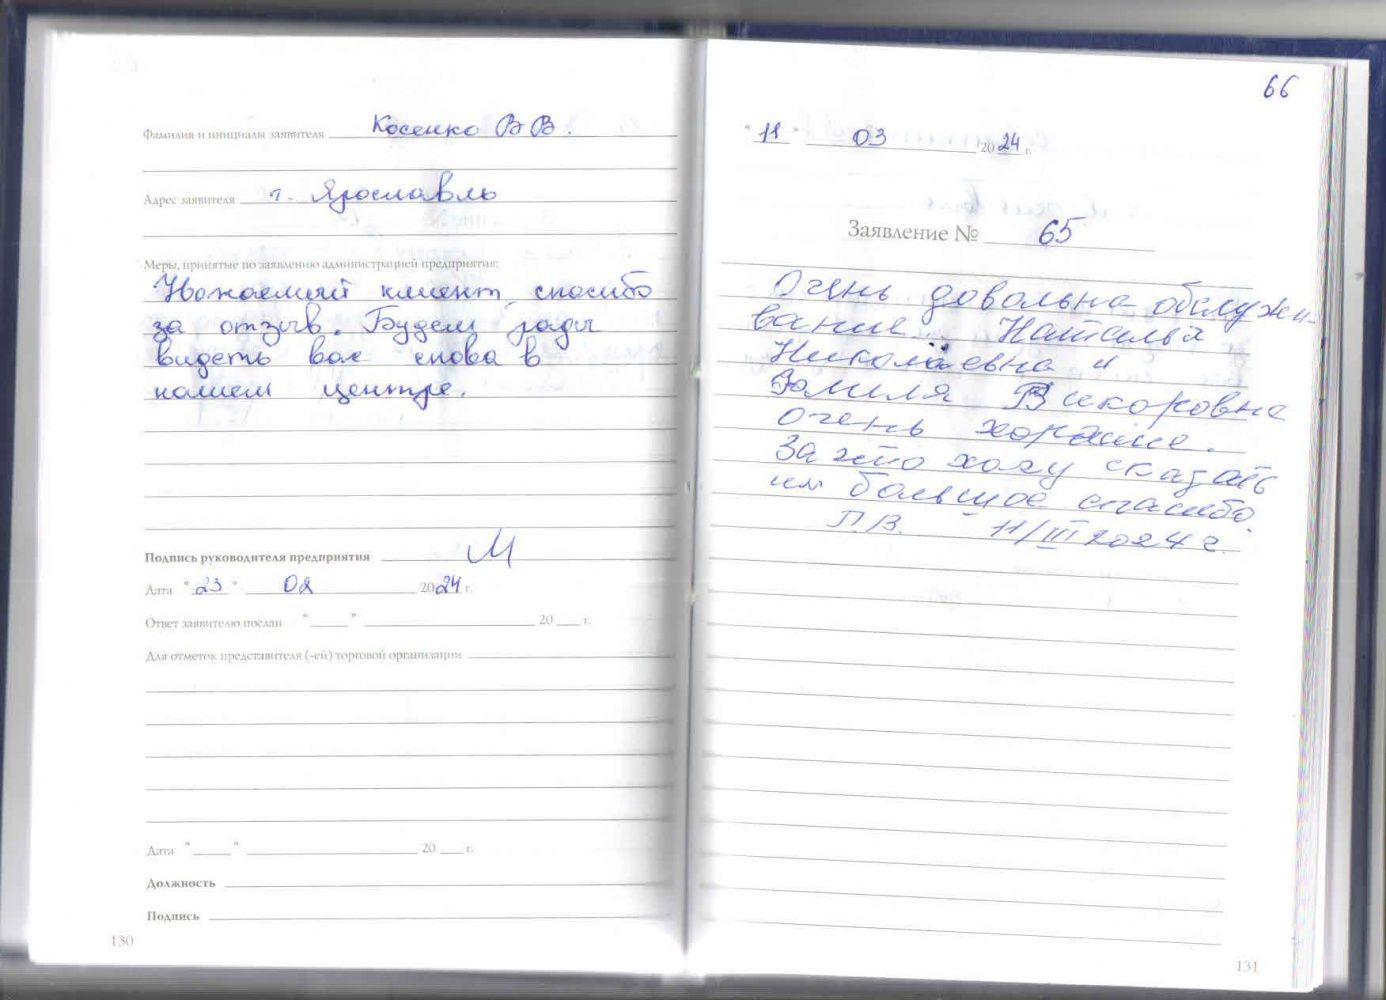 Фамилия и инициалы заявителя Косенко В В.
Адрес заявителя г. Ярославль
Меры, принятые по заявлению администрацией предприятия:
Уважаемый клиент, спасибо
за отзыв. Будем рады
видеть вас снова в
нашем центре.
Подпись руководителя предприятия
Дата "23" 02 2024 г.
Ответ заявителю послан "___" ___ 20 ___ г.
Для отметок представителя (-ей) торговой организации
Дата "___" ___ 20 ___ г.
Должность
Подпись
130
66
"11" 03 2024 г.
Заявление № 65
Очень довольна обслужи-
вание. Наталья
Николаевна и
Викоровна
очень хорошие.
За это хочу сказать
им большое спасибо.
П.В. - 11/III 2024 г.
131